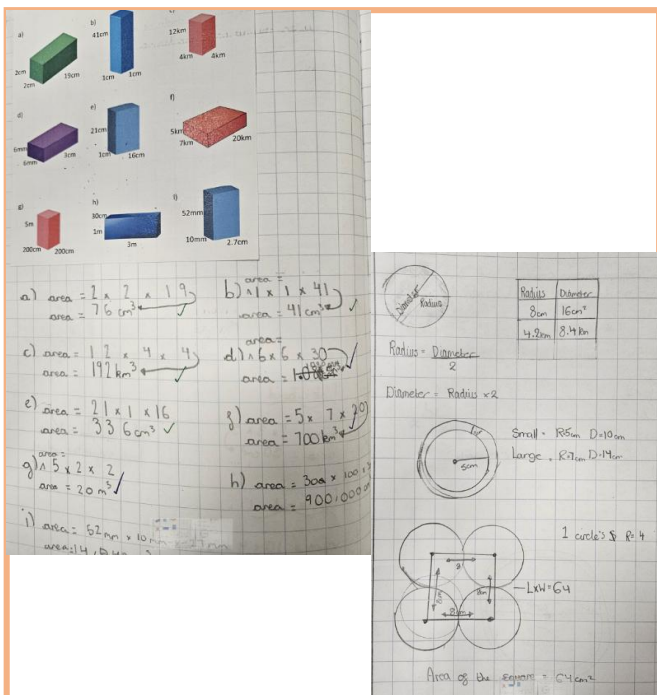 a)
b)
12km
41cm
2cm
2cm
19cm
1cm
1cm
4km
4km
d)
e)
f)
6mm
6mm
3cm
21cm
1cm
16cm
5km
7km
20km
g)
h)
i)
5m
200cm
200cm
30cm
1m
3m
52mm
10mm
2.7cm
a) area = 2 x 2 x 19
area = 76 cm³
b) area =
1 x 1 x 41
area = 41cm³
c) area = 12 x 4 x 4
area = 192 km³
area =
d) 6 x 6 x 30
area =
e) area = 21 x 1 x 16
area = 336cm³
f) area = 5 x 7 x 20
area = 700km³
area =
g) 5 x 2 x 2
area = 20m³
h) area = 300 x 100 x
area =
i) area = 52mm x 10mm x 27mm
area = 14,
Diameter
Radius
Radius Diameter
8cm 16cm
4.2km 8.4km
Radius = Diameter
2
Diameter = Radius x2
5cm
Small = R=5cm D=10cm
Large = R=7cm D=14cm
1 circle's R= 4
8
8cm
8cm
LxW=64
Area of the square = 64cm²